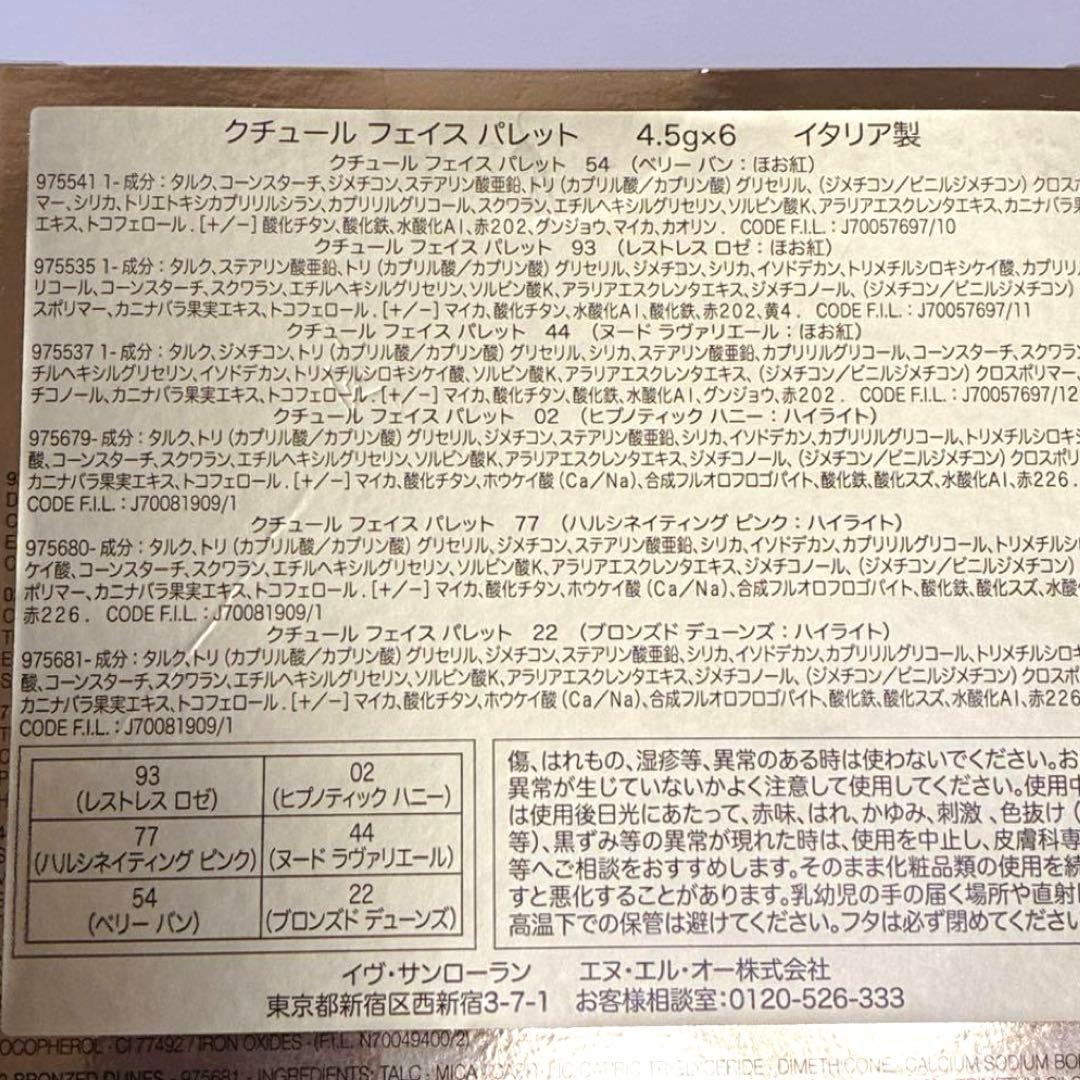 クチュール フェイス パレット 4.5g×6 イタリア製
クチュール フェイス パレット 54 (ベリー バン:ほお紅)
975541 1- 成分:タルク、コーンスターチ、ジメチコン、ステアリン酸亜鉛、トリ(カプリル酸/カプリン酸)グリセリル、(ジメチコン/ビニルジメチコン)クロス
マー、シリカ、トリエトキシカプリリルシラン、カプリリルグリコール、スクワラン、エチルヘキシルグリセリン、ソルビン酸K、アラリアエスクレンタエキス、カニナバラ
エキス、トコフェロール.[+/-]酸化チタン、酸化鉄、水酸化Al、赤202、グンジョウ、マイカ、カオリン. CODE F.I.L.:J70057697/10
クチュール フェイス パレット 93 (レストレス ロゼ:ほお紅)
975535 1- 成分:タルク、ステアリン酸亜鉛、トリ(カプリル酸/カプリン酸)グリセリル、ジメチコン、シリカ、イソドデカン、トリメチルシロキシケイ酸、カプリリ
リコール、コーンスターチ、スクワラン、エチルヘキシルグリセリン、ソルビン酸K、アラリアエスクレンタエキス、ジメチコノール、(ジメチコン/ビニルジメチコン)
スポリマー、カニナバラ果実エキス、トコフェロール.[+/-]マイカ、酸化チタン、水酸化Al、酸化鉄、赤202、黄4. CODE F.I.L.:J70057697/11
クチュール フェイス パレット 44 (ヌード ラヴァリエール:ほお紅)
975537 1- 成分:タルク、ジメチコン、トリ(カプリル酸/カプリン酸)グリセリル、シリカ、ステアリン酸亜鉛、カプリリルグリコール、コーンスターチ、スクワラン
チルヘキシルグリセリン、イソドデカン、トリメチルシロキシケイ酸、ソルビン酸K、アラリアエスクレンタエキス、(ジメチコン/ビニルジメチコン)クロスポリマー、
チコノール、カニナバラ果実エキス、トコフェロール.[+/-]マイカ、酸化チタン、酸化鉄、水酸化Al、グンジョウ、赤202. CODE F.I.L.:J70057697/12
クチュール フェイス パレット 02 (ヒプノティック ハニー:ハイライト)
975679- 成分:タルク、トリ(カプリル酸/カプリン酸)グリセリル、ジメチコン、ステアリン酸亜鉛、シリカ、イソドデカン、カプリリルグリコール、トリメチルシロキシ
酸、コーンスターチ、スクワラン、エチルヘキシルグリセリン、ソルビン酸K、アラリアエスクレンタエキス、ジメチコノール、(ジメチコン/ビニルジメチコン)クロスポリ
カニナバラ果実エキス、トコフェロール.[+/-]マイカ、酸化チタン、ホウケイ酸(Ca/Na)、合成フルオロフロゴパイト、酸化鉄、酸化スズ、水酸化Al、赤226.
CODE F.I.L.:J70081909/1
クチュール フェイス パレット 77 (ハルシネイティング ピンク:ハイライト)
975680- 成分:タルク、トリ(カプリル酸/カプリン酸)グリセリル、ジメチコン、ステアリン酸亜鉛、シリカ、イソドデカン、カプリリルグリコール、トリメチルシロ
ケイ酸、コーンスターチ、スクワラン、エチルヘキシルグリセリン、ソルビン酸K、アラリアエスクレンタエキス、ジメチコノール、(ジメチコン/ビニルジメチコン)
ポリマー、カニナバラ果実エキス、トコフェロール.[+/-]マイカ、酸化チタン、ホウケイ酸(Ca/Na)、合成フルオロフロゴパイト、酸化鉄、酸化スズ、水酸
赤226. CODE F.I.L.:J70081909/1
クチュール フェイス パレット 22 (ブロンズド デューンズ:ハイライト)
975681- 成分:タルク、トリ(カプリル酸/カプリン酸)グリセリル、ジメチコン、ステアリン酸亜鉛、シリカ、イソドデカン、カプリリルグリコール、トリメチルシロキ
酸、コーンスターチ、スクワラン、エチルヘキシルグリセリン、ソルビン酸K、アラリアエスクレンタエキス、ジメチコノール、(ジメチコン/ビニルジメチコン)クロスポ
カニナバラ果実エキス、トコフェロール.[+/-]マイカ、酸化チタン、ホウケイ酸(Ca/Na)、合成フルオロフロゴパイト、酸化鉄、酸化スズ、水酸化Al、赤226
CODE F.I.L.:J70081909/1
93 02
(レストレス ロゼ) (ヒプノティック ハニー)
77 44
(ハルシネイティング ピンク) (ヌード ラヴァリエール)
54 22
(ベリー バン) (ブロンズド デューンズ)
傷、はれもの、湿疹等、異常のある時は使わないでください。お
異常が生じていないかよく注意して使用してください。使用中
は使用後日光にあたって、赤味、はれ、かゆみ、刺激、色抜け(
等)、黒ずみ等の異常が現れた時は、使用を中止し、皮膚科専
等へご相談をおすすめします。そのまま化粧品類の使用を続
すと悪化することがあります。乳幼児の手の届く場所や直射
高温下での保管は避けてください。フタは必ず閉めてください
イヴ・サンローラン エヌ・エル・オー株式会社
東京都新宿区西新宿3-7-1 お客様相談室:0120-526-333
OCOPHEROL · CI 77492 / IRON OXIDES · (F.I.L. N70049400/2)
BRONZED DUNES - 975681 - INGREDIENTS: TALC · MICA · CAPRYLIC/CAPRIC TRIGLYCERIDE · DIMETHICONE · CALCIUM SODIUM BO